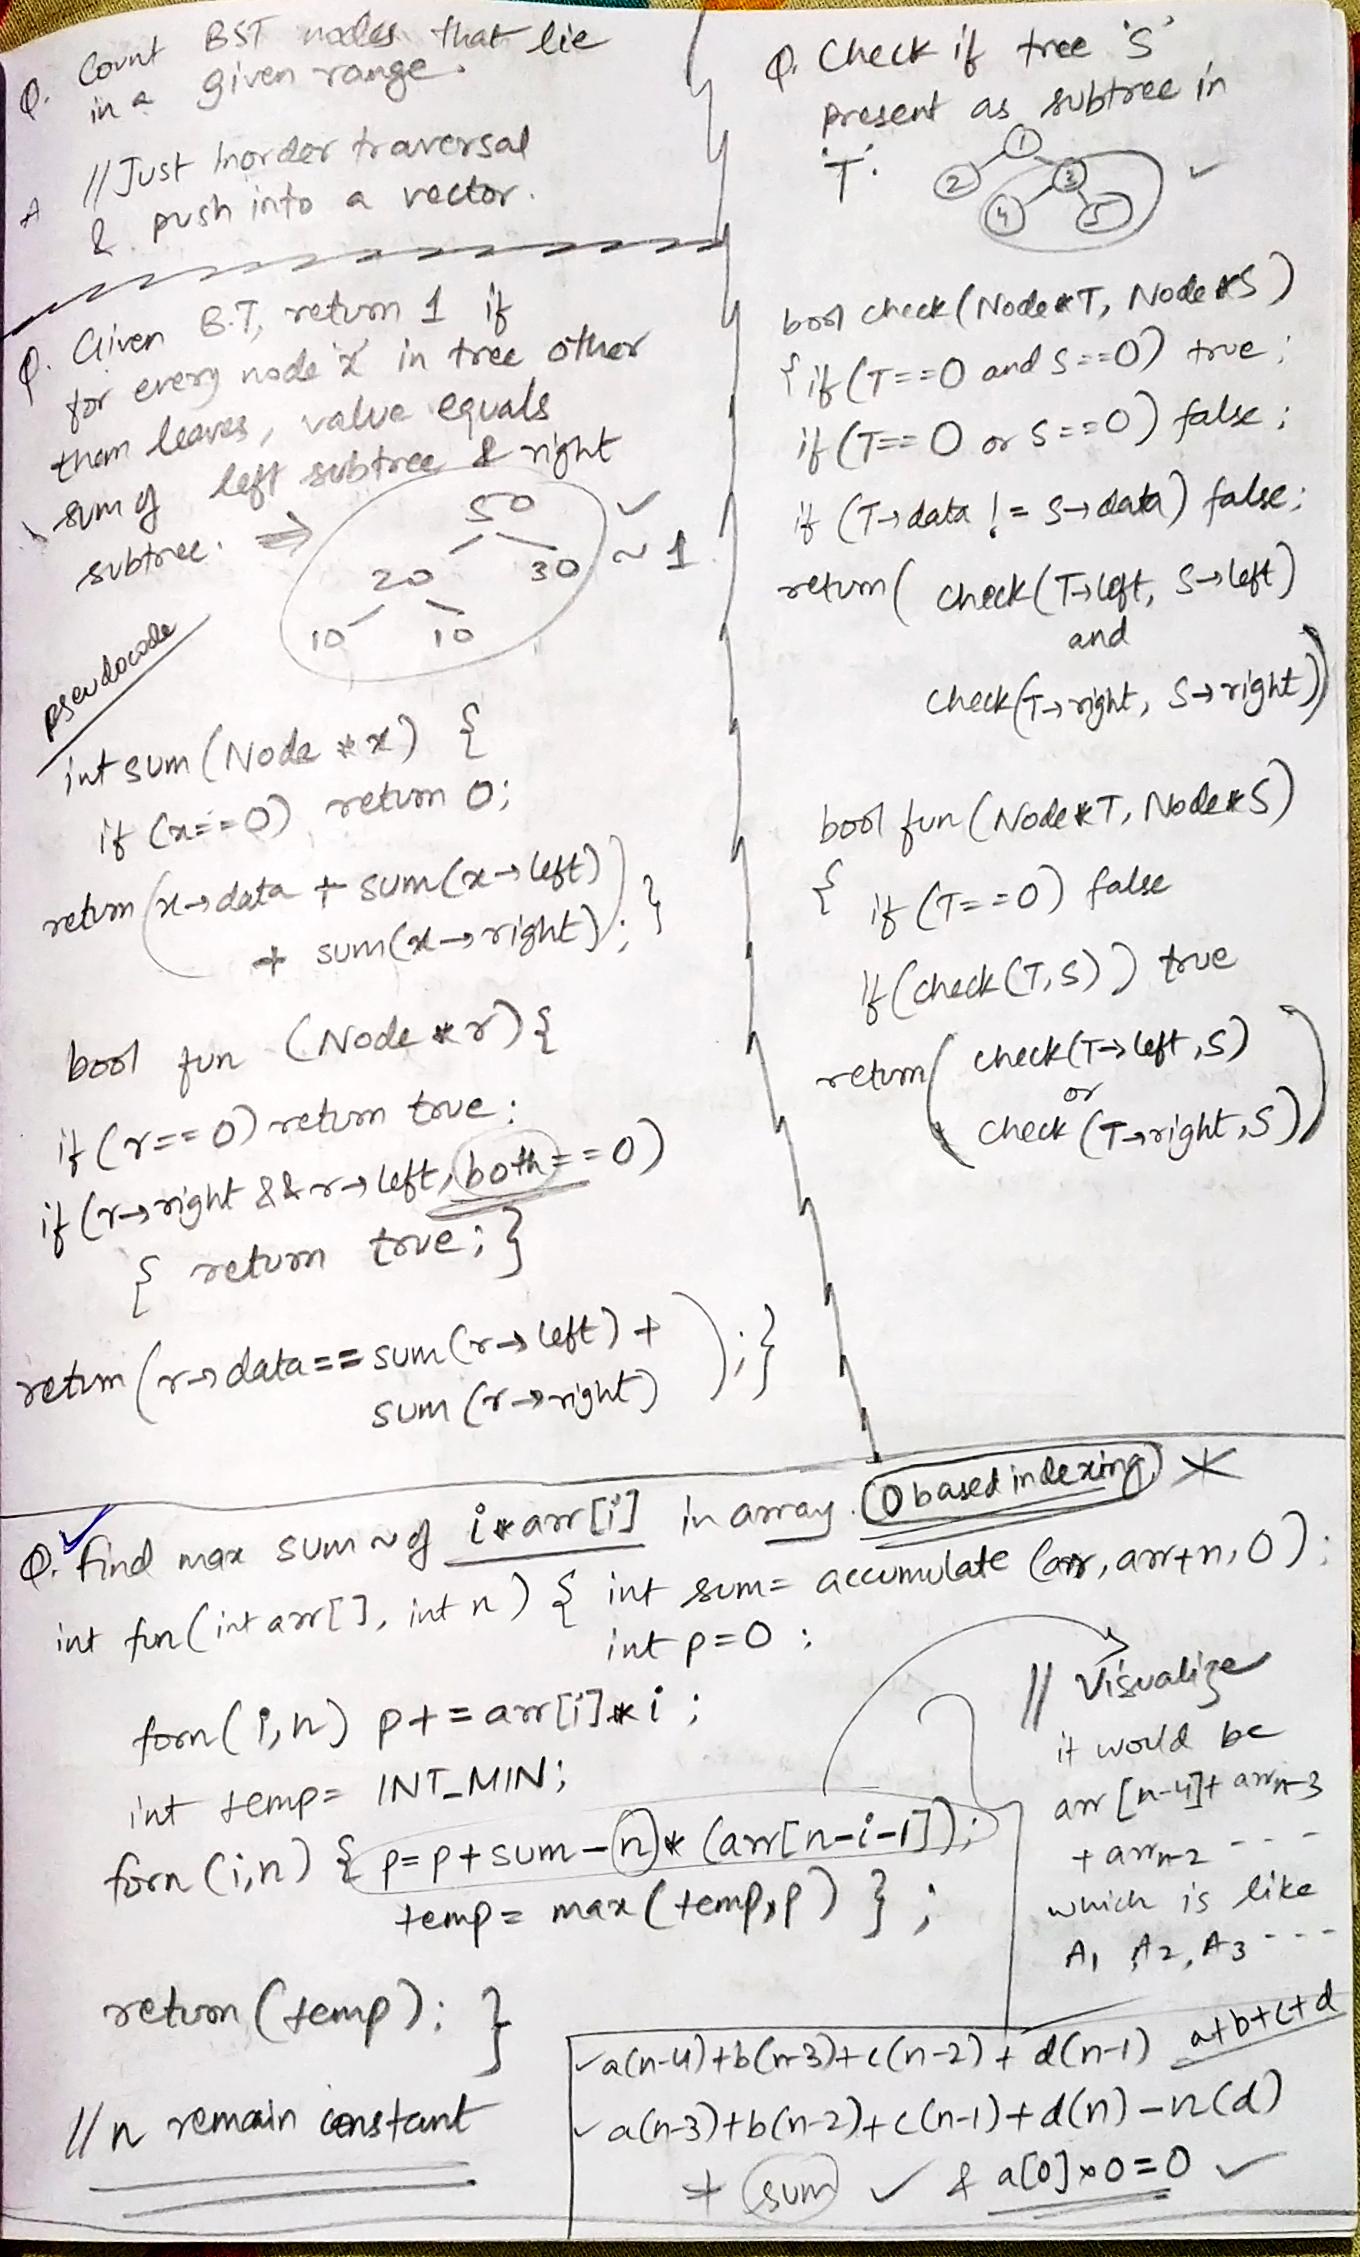 Q. Count BST nodes that lie
in a given range.
A // Just Inorder traversal
& push into a vector.
Q. Given B.T, return 1 if
for every node 'x' in tree other
than leaves, value equals
sum of left subtree & right
subtree. ⇒
50
20 30
10 10
~ 1
pseudocode
int sum (Node *x) {
if (x==0) return 0;
return (x→data + sum(x→left)
+ sum(x→right)); }
bool fun (Node *r) {
if (r==0) return true;
if (r→right && r→left, both==0)
{ return true; }
return (r→data == sum(r→left) +
sum (r→right) ); }
Q. Check if tree 'S'
present as subtree in
'T'.
1
2 3
4 5
bool check (Node *T, Node *S)
{ if (T==0 and S==0) true;
if (T==0 or S==0) false;
if (T→data != S→data) false;
return ( check (T→left, S→left)
and
check (T→right, S→right))
bool fun (Node *T, Node *S)
{ if (T==0) false
if (check (T,S)) true
return ( check (T→left, S)
or
check (T→right, S))
Q. Find max sum ~ of i*arr[i] in array. 0 based indexing
int fun (int arr[], int n) { int sum = accumulate (arr, arr+n, 0);
int p=0;
forn (i,n) p+=arr[i]*i;
int temp= INT_MIN;
forn (i,n) { p=p+sum-n*(arr[n-i-1]);
temp= max (temp,p) } ;
return (temp); }
// n remain constant
// Visualize
it would be
arr [n-4]+ arrn-3
+ arrn-2 ----
which is like
A1 A2, A3 ---
a(n-4)+b(n-3)+c(n-2)+d(n-1) a+b+c+d
a(n-3)+b(n-2)+c(n-1)+d(n)-n(d)
+ sum & a[0]x0=0